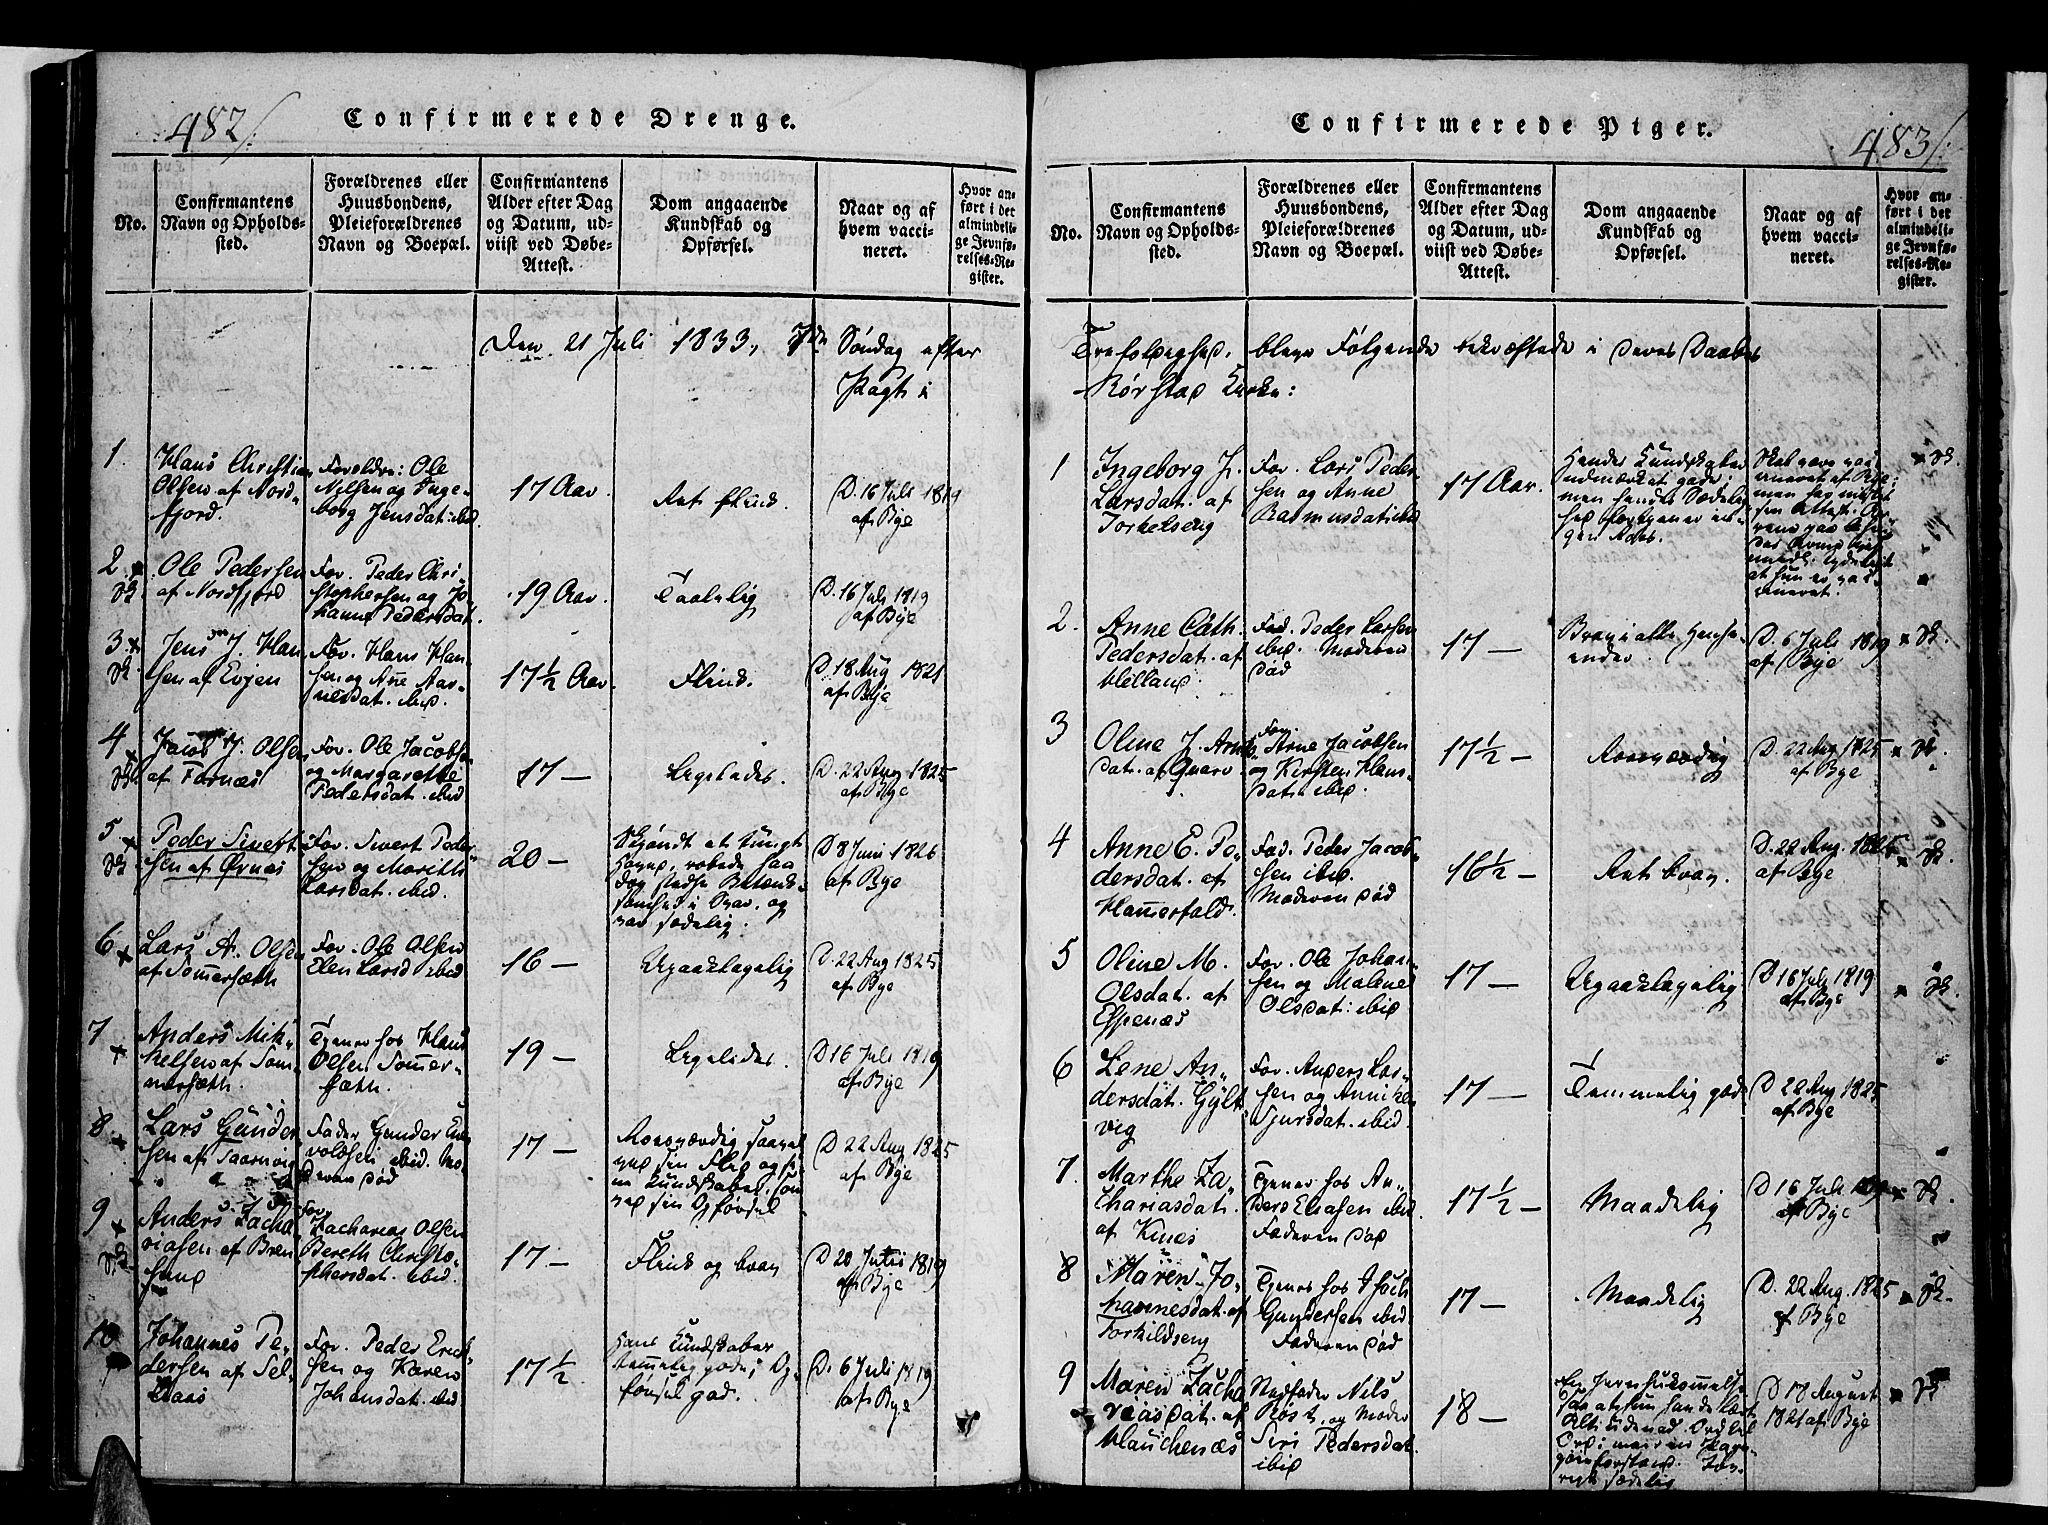 482/.
Confirmerede Drenge.
No.
Confirmantens
Navn og Opholds-
sted.
Forældrenes eller
Huusbondens,
Pleieforældrenes
Navn og Boepæl.
Confirmantens
Alder efter Dag
og Datum, ud-
viist ved Døbe-
Attest.
Dom angaaende
Kundskab og
Opførsel.
Naar og af
hvem vacci-
neret.
Hvor an-
ført i det
almindeli-
ge Jevnfø-
relses-Re-
gister.
Den 21 Juli 1833, 7de Søndag efter
Pagt i
1.
Hans Christian
Olsen af Nord-
fjord.
Forældre: Ole
Nilsen og Inge-
borg Jensdat: ibid
17 Aar.
Ret flink.
D. 16 Juli 1819
af Bye
2.
Ole Pedersen
af Nordfjord
For. Peder Chri-
stophersen og Jo-
hanne Pedersdat.
19 Aar.
Taalelig
D. 16 Juli 1819
af Bye
3.
Jens J. Han-
sen af Evjen
For. Hans Han-
sen og Ane Aar-
nesdat. ibid.
17½ Aar.
Flink.
D. 18 Aug 1821
af Bye
4
Jacob J. Olsen
af Fornæs
For. Ole Jacobsen
og Margarethe
Pedersdat. ibid
17 —
Ligeledes.
D. 22 Aug 1825
af Bye
5.
Peder Sivert-
sen af Ørnæs
For. Sivert Peder-
sen og Marith
Larsdat. ibid.
20 —
Skjøndt et tungt
og
sædelig.
D 8 Juni 1826
af Bye
6
Lars A. Olsen
af Sommersæth
For. Ole Olsen
Elen Larsd ibid
16 —
Upaaklagelig
D. 22 Aug 1825
af Bye
7
Anders Mik-
kelsen af Som-
mersæth.
Tjener hos Hans
Olsen Sommer-
sæth.
19 —
Ligeledes.
D 16 Juli 1819
af Bye
8.
Lars Gunder-
sen af Taarnvig
Fader Gunder En-
voldsen ibid. Mo-
deren død
17 —
Roesværdig saavel
ved sin Flid og si-
ne Kundskaber, som
ved sin Opførsel
D 22 Aug 1825
af Bye
9
Anders Zacha-
riasen af Bren-
sund
For.
Zacharias Olsen
Bereth Christo-
phersdat. ibid.
17 —
Flink og brav
D 20 Juli 1819
af Bye
10
Johannes Pe-
dersen af Sel-
aas
For. Peder Erick-
sen og Karen
Johansdat. ibid
17½
Hans Kundskaber
temmelig gode; Op-
førsel god.
D. 6 Juli 1819
af Bye
Confirmerede Piger.
483/.
No.
Confirmantens
Navn og Opholds-
sted.
Forældrenes eller
Huusbondens,
Pleieforældrenes
Navn og Boepæl.
Confirmantens
Alder efter Dag
og Datum, ud-
viist ved Døbe-
Attest.
Dom angaaende
Kundskab og
Opførsel.
Naar og af
hvem vacci-
neret.
Hvor an-
ført i det
almindeli-
ge Jevnfø-
relses-Re-
gister.
Trefoldighed, bleve Følgende bekræftede i deres Daabes
Rørstad Kirke:
1
Ingeborg J.
Larsdat. af
Torkelseng
For. Lars Peder-
sen og Anne
Rasmusdat ibid
17 Aar.
Hendes Kundskaber
udmærket gode;
men hendes Sædelig-
hed
Skal være vac-
cineret af Bye;
men har mistet
sin Attest.
at hun er vac-
cineret.
2.
Anne Cath.
Pedersdat. af
Helland
Fad. Peder Larsen
ibid. Moderen
død
17 —
Brav i alle Hense-
ender.
D. 6 Juli 1819
af Bye
3
Oline J. Arne-
dat. af Qvarv
For.
Arne Jacobsen
og Kirsten Hans-
dat. ibid.
17½ —
Roesværdig
D. 22 Aug 1825
af Bye
4
Anne E. Pe-
dersdat. af
Hamerfald.
Fad. Peder Jacob-
sen ibid.
Moderen død
16½ —
Ret brav.
D. 22 Aug. 1825
af Bye
5
Oline M.
Olsdat. af
Espenæs
For. Ole Johan-
sen og Malene
Olsdat: ibid
17 —
Upaaklagelig
D 16 Juli 1819
af Bye
6
Lene An-
dersdat. Gylt-
vig
For. Anders Lar-
sen og Annike
Sjursdat. ibid.
17 —
Temmelig god
D 22 Aug 1825
af Bye
7.
Marthe Za-
chariasdat.
af Kines
Tjener hos An-
ders Eliasen ibid.
Faderen død
17½ —
Maadelig
D 16 Juli
af Bye
8
Maren Jo-
hannesdat. af
Torkildseng
Tjener hos
Gundersen ibid
Faderen død
17 —
Maadelig
D. 22 Aug. 1825
af Bye
9
Maren Zacha-
riasdat. af
Hauchenæs
Stedfader Nils
Røst, og Moder
Siri Pedersdat.
ibid
18 —
En
Alt udenad, Ord til
Ord; men
sædelig
D 18 August
1821 af Bye